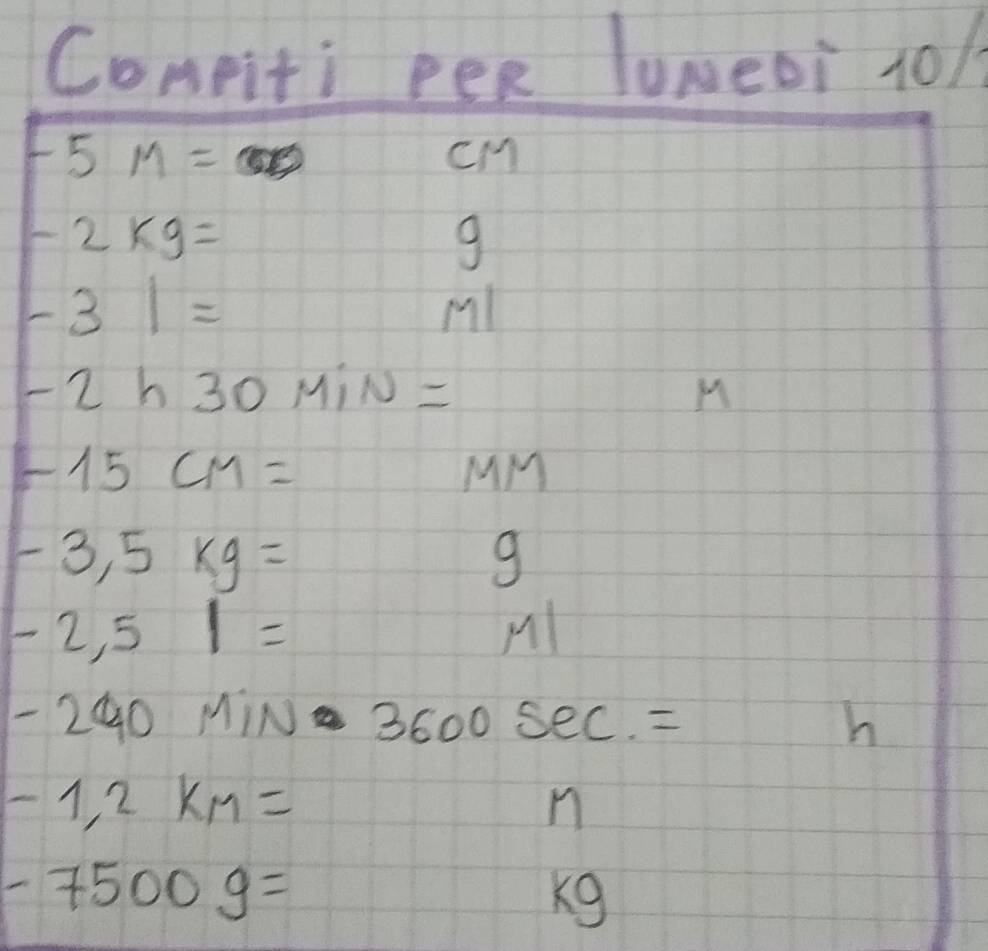 Compiti per lunedì 10/
- 5 m = cm
- 2 kg = g
- 3 l = ml
- 2 h 30 min = m
- 15 cm = mm
- 3,5 kg = g
- 2,5 l = ml
- 240 min 3600 sec. = h
- 1,2 km = m
- 7500 g = kg